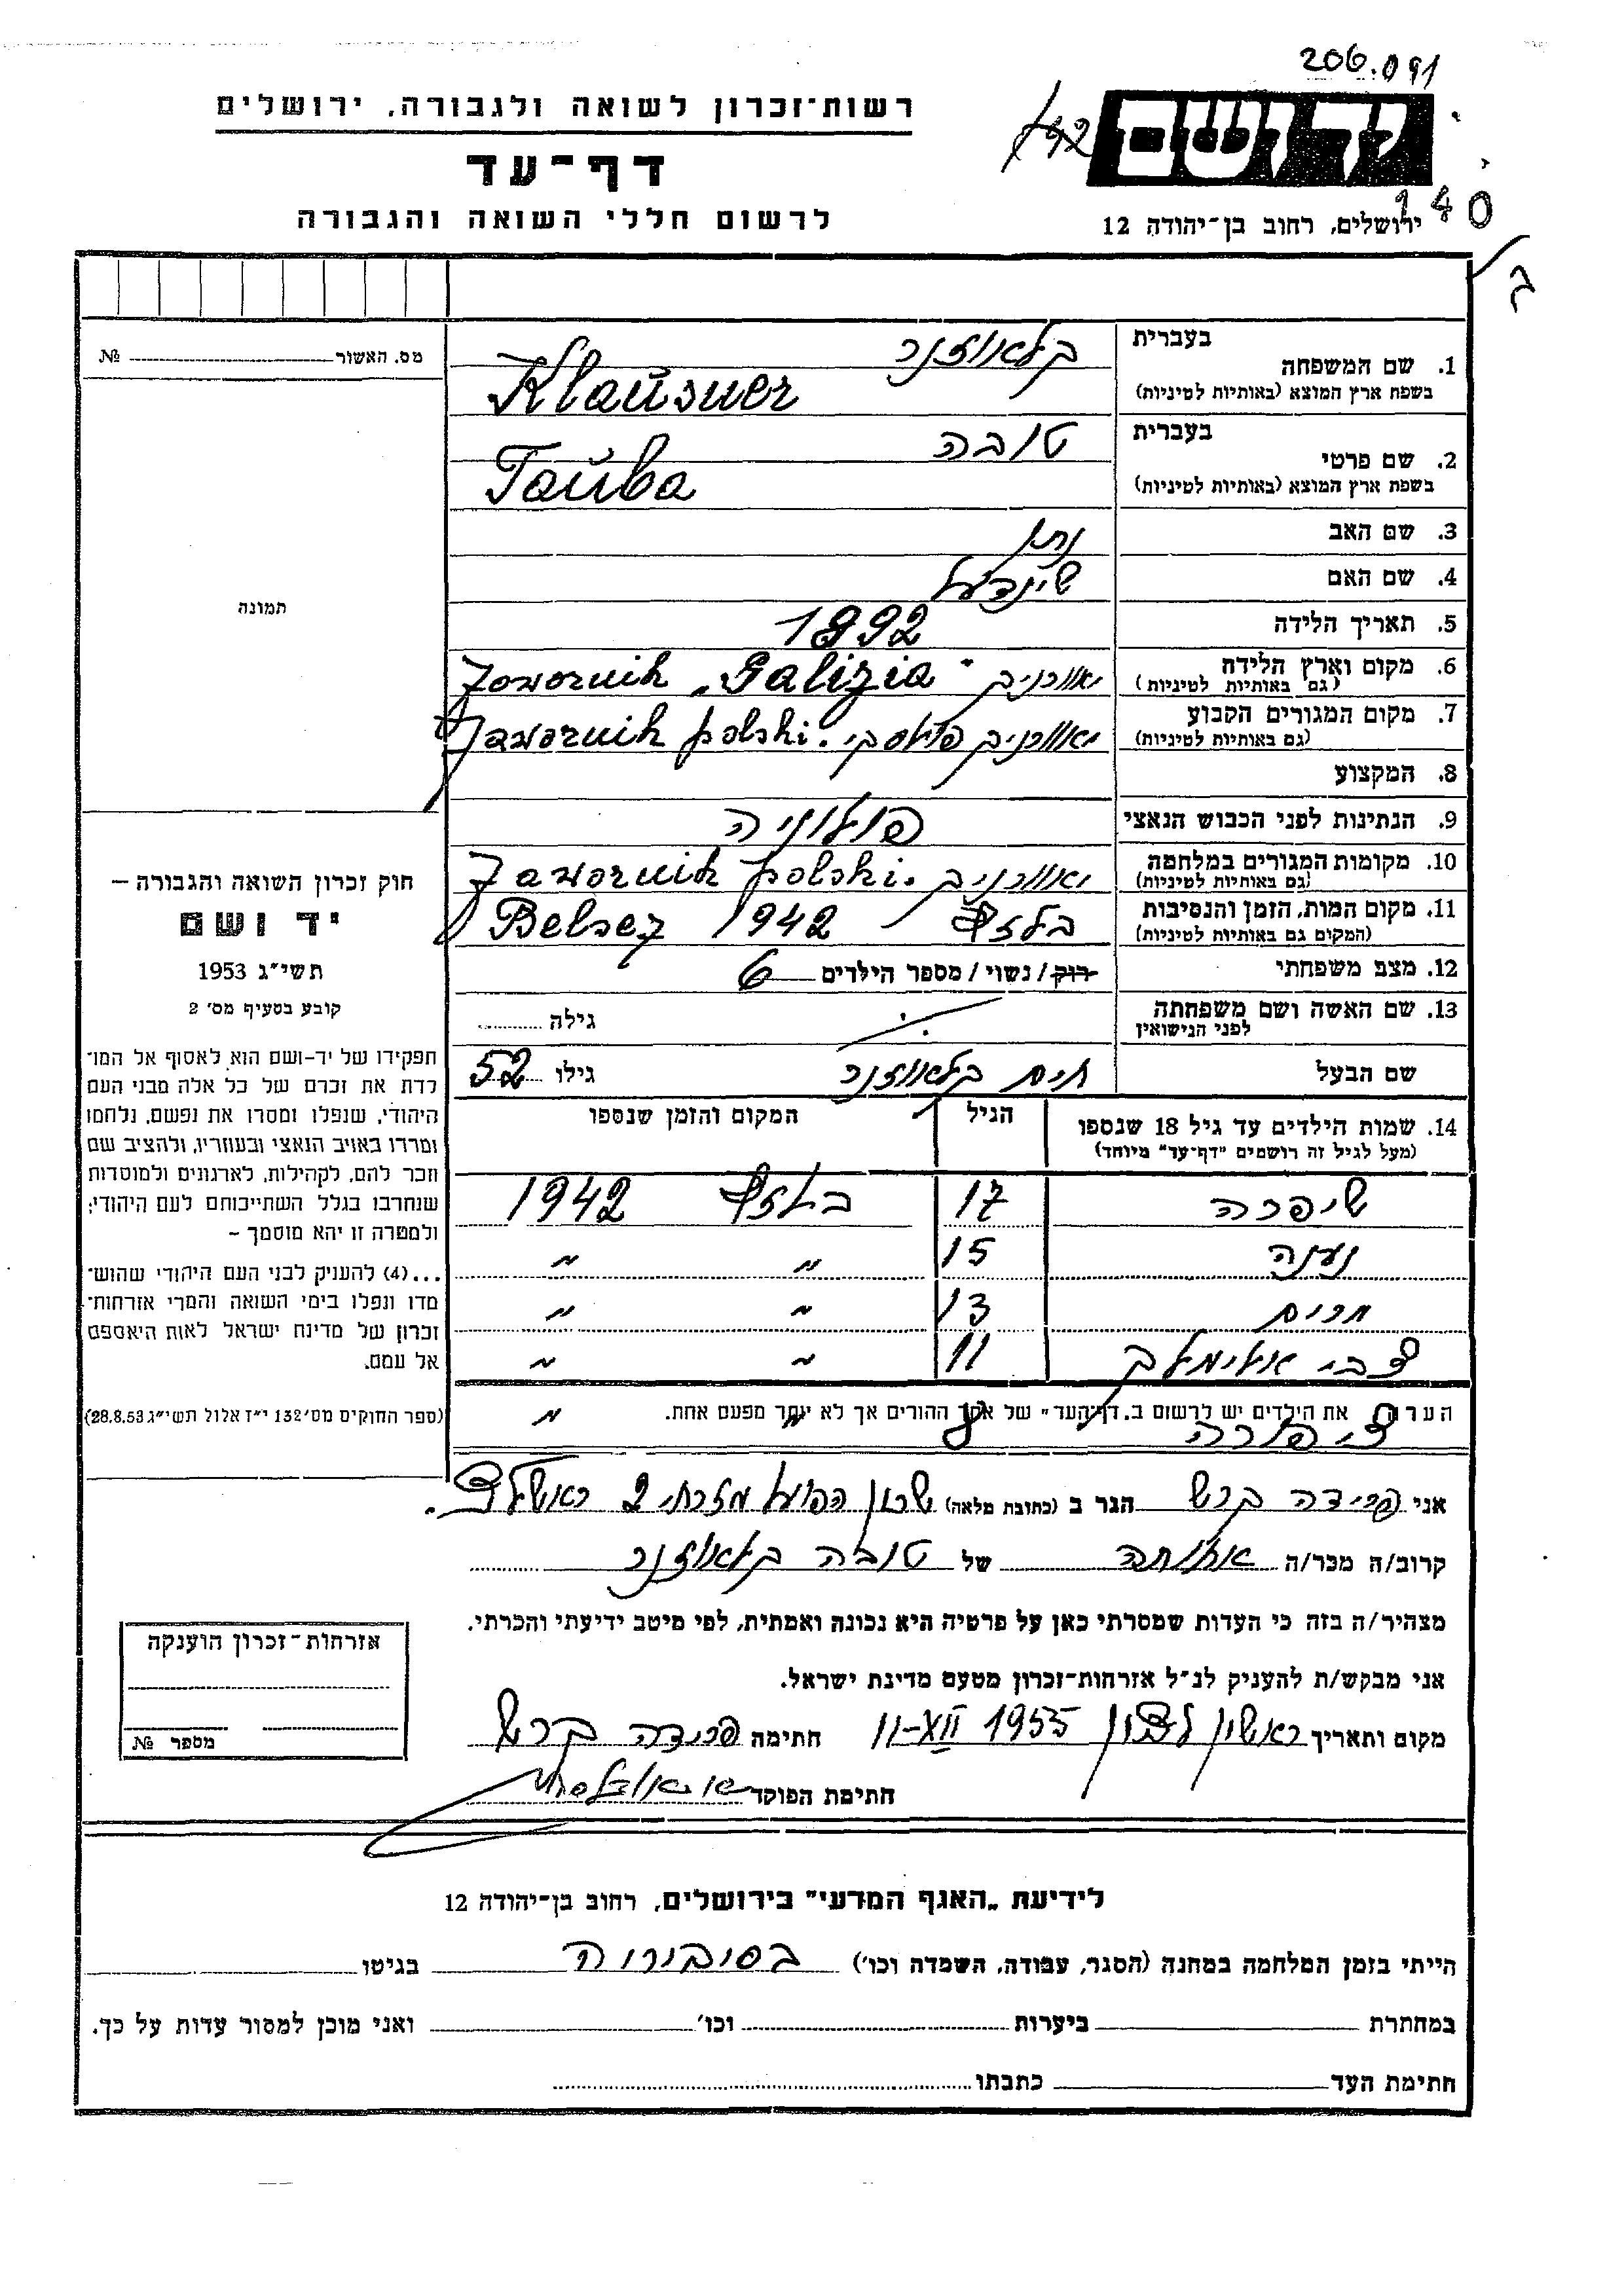 206.091
רשות־זכרון לשואה ולגבורה, ירושלים
יד ושם
דף־עד
140
לרשום חללי השואה והגבורה
ירושלים, רחוב בן־יהודה 12
מס. האשור № 
1. שם המשפחה
בעברית
קלאוזנר
בשפת ארץ המוצא (באותיות לטיניות)
Klaŭsner
2. שם פרטי
בעברית
טובה
בשפת ארץ המוצא (באותיות לטיניות)
Taŭba
3. שם האב נתן
4. שם האם שינדעל
תמונה
5. תאריך הלידה 1892
6. מקום וארץ הלידה
(גם באותיות לטיניות)
יאוורניק Jawornik „Galizia"
7. מקום המגורים הקבוע
(גם באותיות לטיניות)
יאוורניק פולסקי. Jawornik polski
8. המקצוע
9. הנתינות לפני הכבוש הנאצי פולוניה
10. מקומות המגורים במלחמה
(גם באותיות לטיניות)
יאוורניק Jawornik polski.
11. מקום המות, הזמן והנסיבות
(המקום גם באותיות לטיניות)
Belsez 1942
12. מצב משפחתי רוק/נשוי/מספר הילדים 6
13. שם האשה ושם משפחתה
לפני הנישואין
גילה
שם הבעל חיים קלאוזנר גילו 52
14. שמות הילדים עד גיל 18 שנספו
(מעל לגיל זה רושמים "דף־עד" מיוחד)
הגיל
המקום והזמן שנספו
שיפרה 17 1942
נענה 15 〃 〃
מרים 13 〃 〃
צבי אלימלך 11 〃 〃
הערה: את הילדים יש לרשום ב„דף־העד" של אחד ההורים אך לא יותר מפעם אחת.
צ פורה 8 〃 〃
חוק זכרון השואה והגבורה —
יד ושם
תשי"ג 1953
קובע בסעיף מס' 2
תפקידו של יד-ושם הוא לאסוף אל המו־
לדת את זכרם של כל אלה מבני העם
היהודי, שנפלו ומסרו את נפשם, נלחמו
ומרדו באויב הנאצי ובעוזריו, ולהציב שם
וזכר להם, לקהילות, לארגונים ולמוסדות
שנחרבו בגלל השתייכותם לעם היהודי;
ולמטרה זו יהא מוסמך –
...(4) להעניק לבני העם היהודי שהוש־
מדו ונפלו בימי השואה והמרי אזרחות־
זכרון של מדינת ישראל לאות היאספם
אל עמם.
(ספר החוקים מס' 132 י"ז אלול תשי"ג 28.8.53)
אני פרידה קרש הגר ב (כתובת מלאה) שכון הפועל מזרחי 2 ראשל"צ.
קרוב/ה מכר/ה אחותה של טובה קלאוזנר
מצהיר/ה בזה כי העדות שמסרתי כאן על פרטיה היא נכונה ואמתית, לפי מיטב ידיעתי והכרתי.
אני מבקש/ת להעניק לנ"ל אזרחות־זכרון מטעם מדינת ישראל.
מקום ותאריך ראשון לציון 11-XII 1955 חתימה פרידה קרש
חתימת הפוקד
אזרחות־זכרון הוענקה
מספר №
לידיעת „האגף המדעי" בירושלים, רחוב בן־יהודה 12
הייתי בזמן המלחמה במחנה (הסגר, עבודה, השמדה וכו') בסיביריה בגיטו
במחתרת ביערות וכו' ואני מוכן למסור עדות על כך.
חתימת העד כתבתו